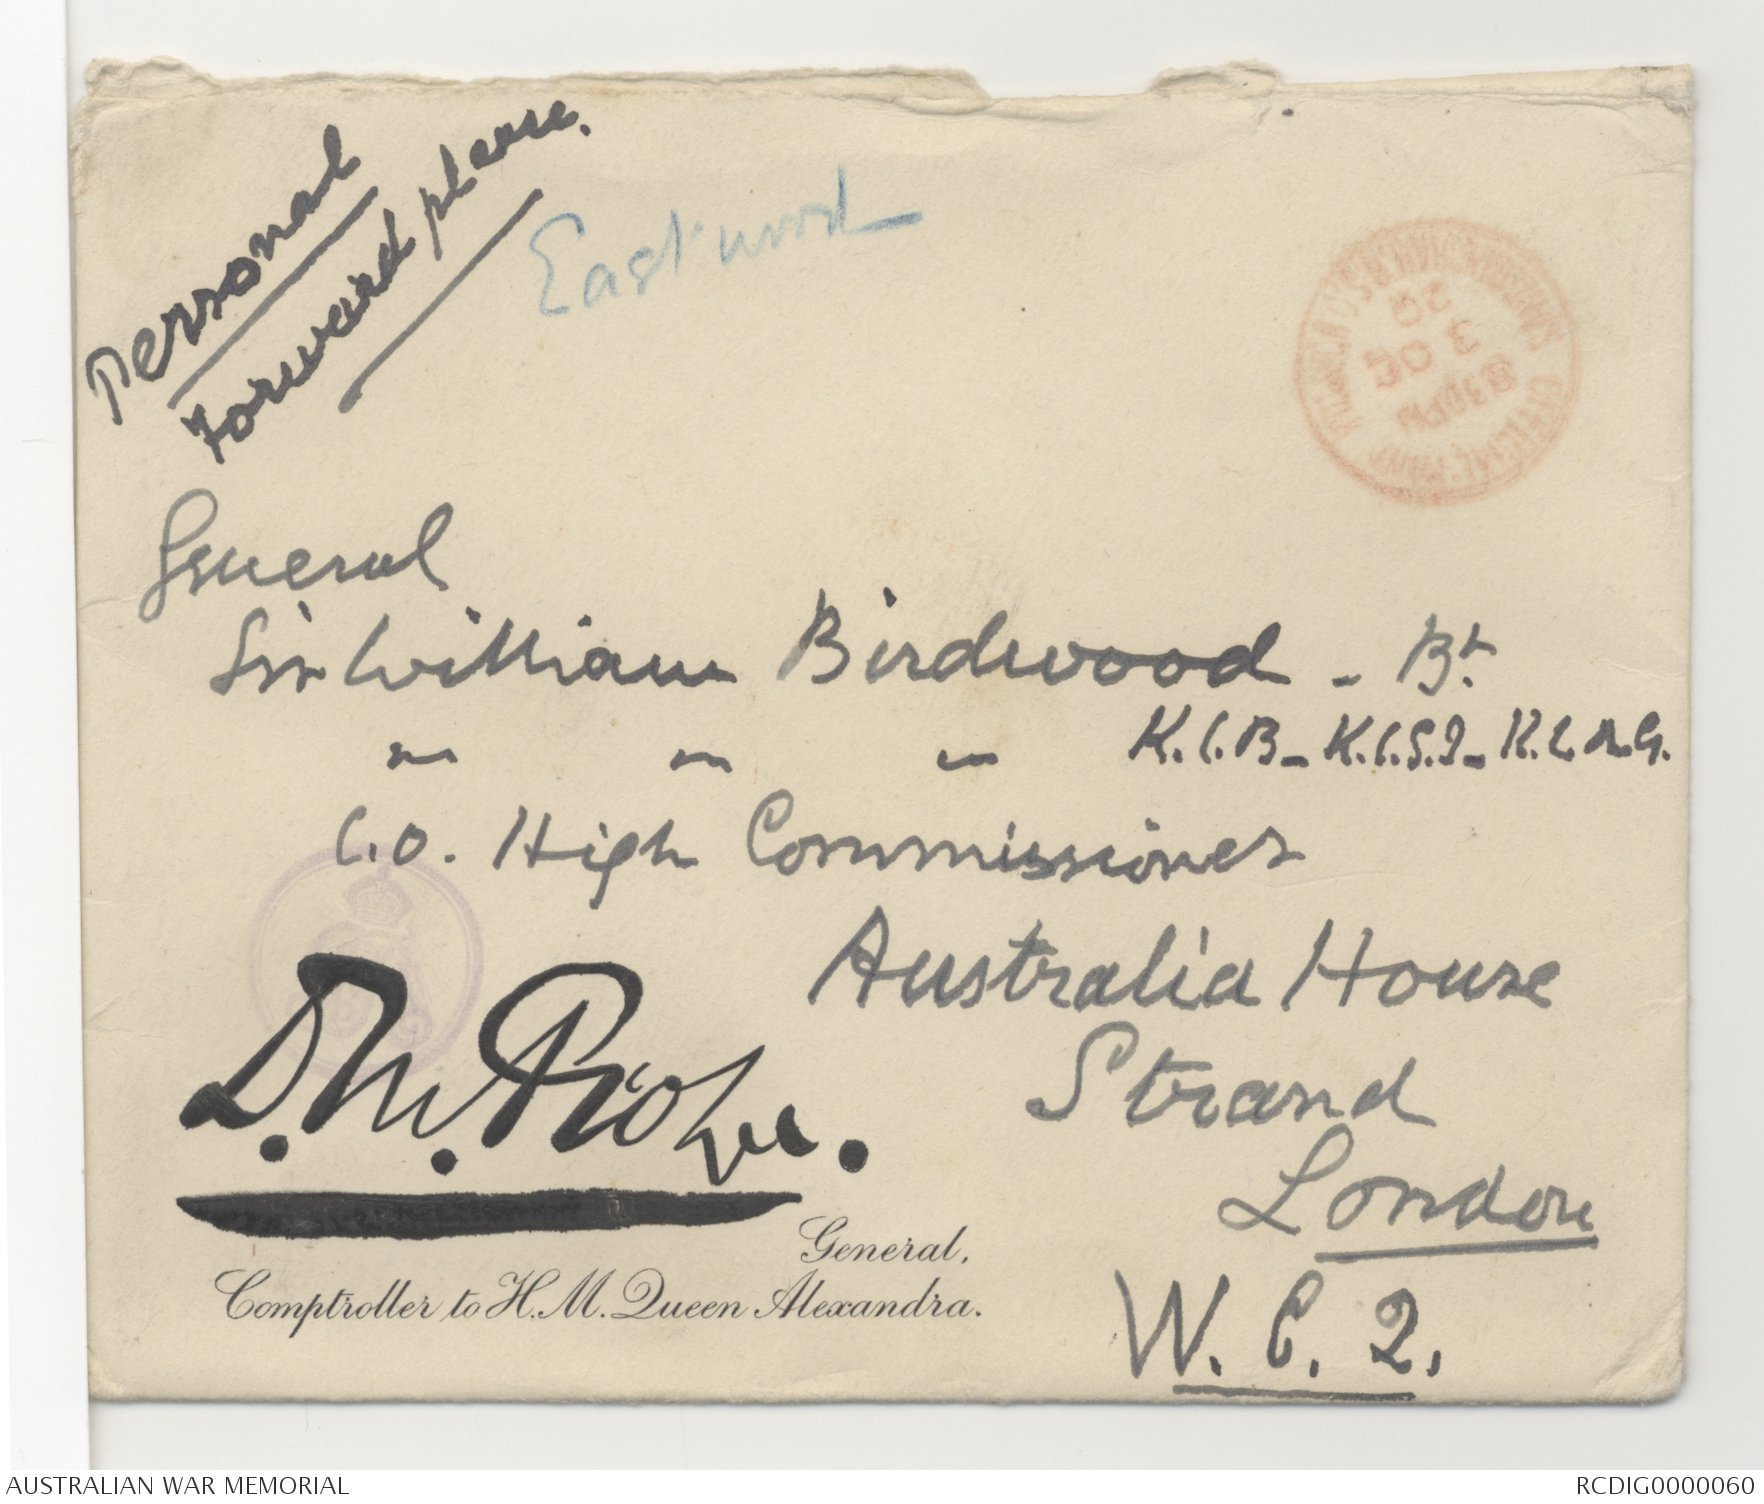 Personal
Forward please.
Eastwood
8 30 PM
3 DE
20
OFFICIAL PAID
General
Sir William Birdwood - Bt.
" " " K.C.B - K.C.S.I - K.C.M.G.
C.O. High Commissioner
Australia House
Strand
London
W.C.2.
General,
Comptroller to H.M. Queen Alexandra.
AUSTRALIAN WAR MEMORIAL
RCDIG0000060